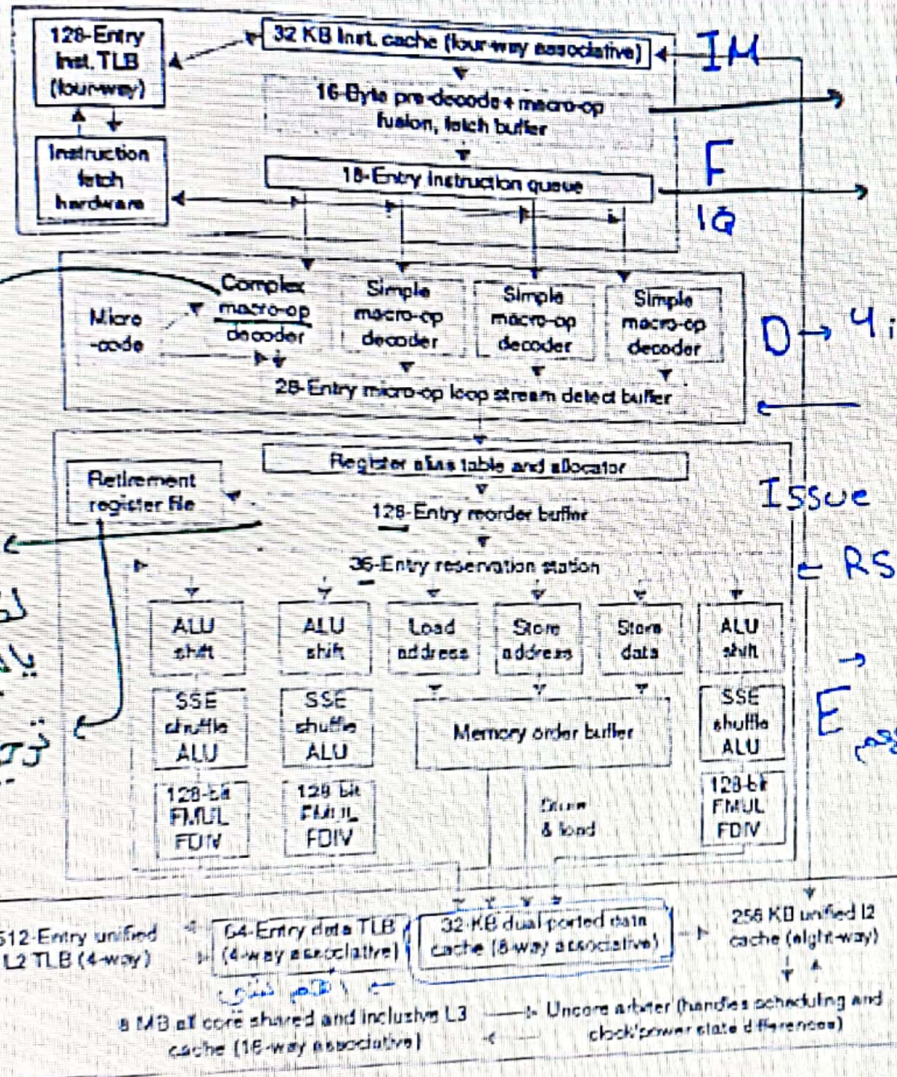 128-Entry
Inst. TLB
(four-way)
32 KB Inst. cache (four-way associative)
IM
16-Byte pre-decode + macro-op
fusion, fetch buffer
Instruction
fetch
hardware
18-Entry instruction queue
F
IQ
Micro
-code
Complex
macro-op
decoder
Simple
macro-op
decoder
Simple
macro-op
decoder
Simple
macro-op
decoder
D → 4i
28-Entry micro-op loop stream detect buffer
Register alias table and allocator
Retirement
register file
128-Entry reorder buffer
Issue
36-Entry reservation station
← RS
ALU
shift
ALU
shift
Load
address
Store
address
Store
data
ALU
shift
SSE
shuffle
ALU
SSE
shuffle
ALU
Memory order buffer
SSE
shuffle
ALU
E
128-bit
FMUL
FDIV
128-bit
FMUL
FDIV
Store
& load
128-bit
FMUL
FDIV
512-Entry unified
L2 TLB (4-way)
64-Entry data TLB
(4-way associative)
32-KB dual-ported data
cache (8-way associative)
256 KB unified l2
cache (eight-way)
8 MB all core shared and inclusive L3
cache (16-way associative)
Uncore arbiter (handles scheduling and
clock/power state differences)